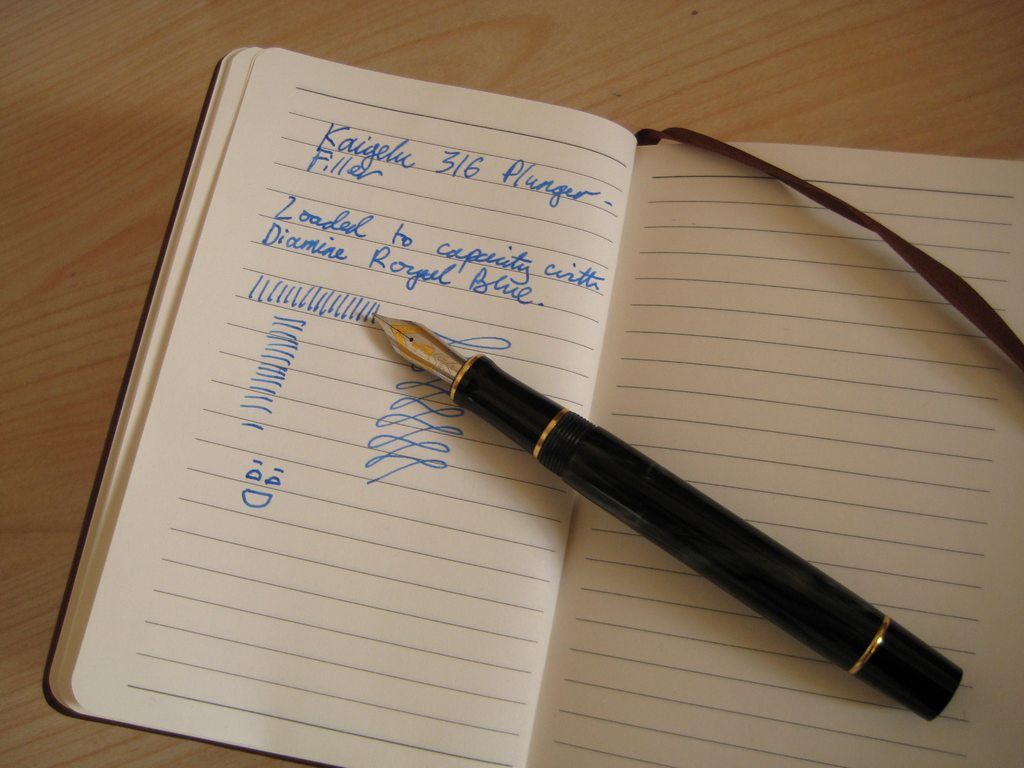 Kaigelu 316 Plunger-
Filler
Loaded to capacity with
Diamine Royal Blue.